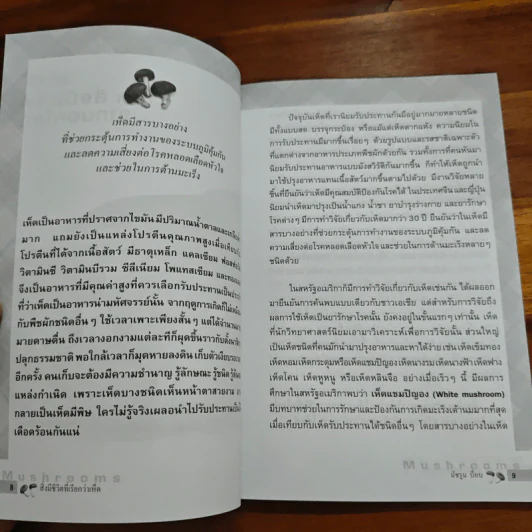 เห็ดมีสารบางอย่าง
ที่ช่วยกระตุ้นการทำงานของระบบภูมิคุ้มกัน
และลดความเสี่ยงต่อโรคหลอดเลือดหัวใจ
และช่วยในการต้านมะเร็ง
เห็ดเป็นอาหารที่ปราศจากไขมัน มีปริมาณน้ำตาลและเกลือ
มาก แถมยังเป็นแหล่งโปรตีนคุณภาพสูงเมื่อเทียบกับ
โปรตีนที่ได้จากเนื้อสัตว์ มีธาตุเหล็ก แคลเซียม ฟอสฟอรัส
วิตามินซี วิตามินบีรวม ซีลีเนียม โพแทสเซียม และทองแดง
จึงเป็นอาหารที่มีคุณค่าสูงที่ควรเลือกรับประทานเป็นประจำ
ที่ว่าเห็ดเป็นอาหารน่ามหัศจรรย์นั้น จากฤดูการเกิดก็ไม่เหมือน
กับพืชผักชนิดอื่นๆ ใช้เวลาเพาะเพียงสั้นๆ แต่ได้จำนวน
มายดาษดื่น ถึงเวลางอกงามแต่ละทีก็ผุดขึ้นราวกับดั่ง
ปลุกธรรมชาติ พอใกล้เวลาก็ผุดหายลงดิน เก็บตัวเงียบ
อีกครั้ง คนเก็บจะต้องมีความชำนาญ รู้ลักษณะ รู้ชนิด รู้
แหล่งกำเนิด เพราะเห็ดบางชนิดเห็นหน้าตาสวยงาม
กลายเป็นเห็ดมีพิษ ใครไม่รู้จริงเผลอนำไปรับประทาน
เดือดร้อนกันแน่
Mushrooms
8 สิ่งมีชีวิตที่เรียกว่าเห็ด
ปัจจุบันเห็ดที่เรานิยมรับประทานกันมีอยู่มากมายหลายชนิด
มีทั้งแบบสด บรรจุกระป๋อง หรือแม้แต่เห็ดตากแห้ง ความนิยมใน
การรับประทานมีมากขึ้นเรื่อยๆ ด้วยรูปแบบและรสชาติเฉพาะตัว
ที่แตกต่างจากอาหารประเภทพืชผักด้วยกัน รวมทั้งการที่คนหันมา
นิยมรับประทานอาหารแบบมังสวิรัติกันมากขึ้น ก็ทำให้เห็ดถูกนำ
มาใช้ปรุงอาหารแทนเนื้อสัตว์มากขึ้นตามไปด้วย มีงานวิจัยหลาย
ชิ้นที่ยืนยันว่าเห็ดมีคุณสมบัติป้องกันโรคได้ ในประเทศจีน และญี่ปุ่น
นิยมนำเห็ดมาปรุงเป็นน้ำแกง น้ำชา ยาบำรุงร่างกาย และยารักษา
โรคต่างๆ มีการทำวิจัยเกี่ยวกับเห็ดมากกว่า 30 ปี ยืนยันว่าในเห็ดมี
สารบางอย่างที่ช่วยกระตุ้นการทำงานของระบบภูมิคุ้มกัน และลด
ความเสี่ยงต่อโรคหลอดเลือดหัวใจ และช่วยในการต้านมะเร็งหลายๆ
ชนิดด้วย
ในสหรัฐอเมริกาก็มีการทำวิจัยเกี่ยวกับเห็ดเช่นกัน ได้ผลออก
มายืนยันการค้นพบแบบเดียวกับชาวเอเชีย แต่สำหรับการวิจัยถึง
ผลการใช้เห็ดเป็นยารักษาโรคนั้น ยังคงอยู่ในขั้นแรกๆ เท่านั้น เห็ด
ที่นักวิทยาศาสตร์นิยมเอามาวิเคราะห์เพื่อการวิจัยนั้น ส่วนใหญ่
เป็นเห็ดชนิดที่คนมักนำมาปรุงอาหารและหาได้ง่าย เช่น เห็ดเข็มทอง
เห็ดหอม เห็ดกระดุมหรือเห็ดแชมปิญอง เห็ดนางรม เห็ดนางฟ้า เห็ดฟาง
เห็ดโคน เห็ดหูหนู หรือเห็ดหลินจือ อย่างเมื่อเร็วๆ นี้ มีผลการ
ศึกษาในสหรัฐอเมริกาพบว่า เห็ดแชมปิญอง (White mushroom)
มีบทบาทช่วยในการรักษาและป้องกันการเกิดมะเร็งเต้านมมากที่สุด
เมื่อเทียบกับเห็ดรับประทานได้ชนิดอื่นๆ โดยสารบางอย่างในเห็ด
Mushrooms
มัชรูม ป็อบ 9